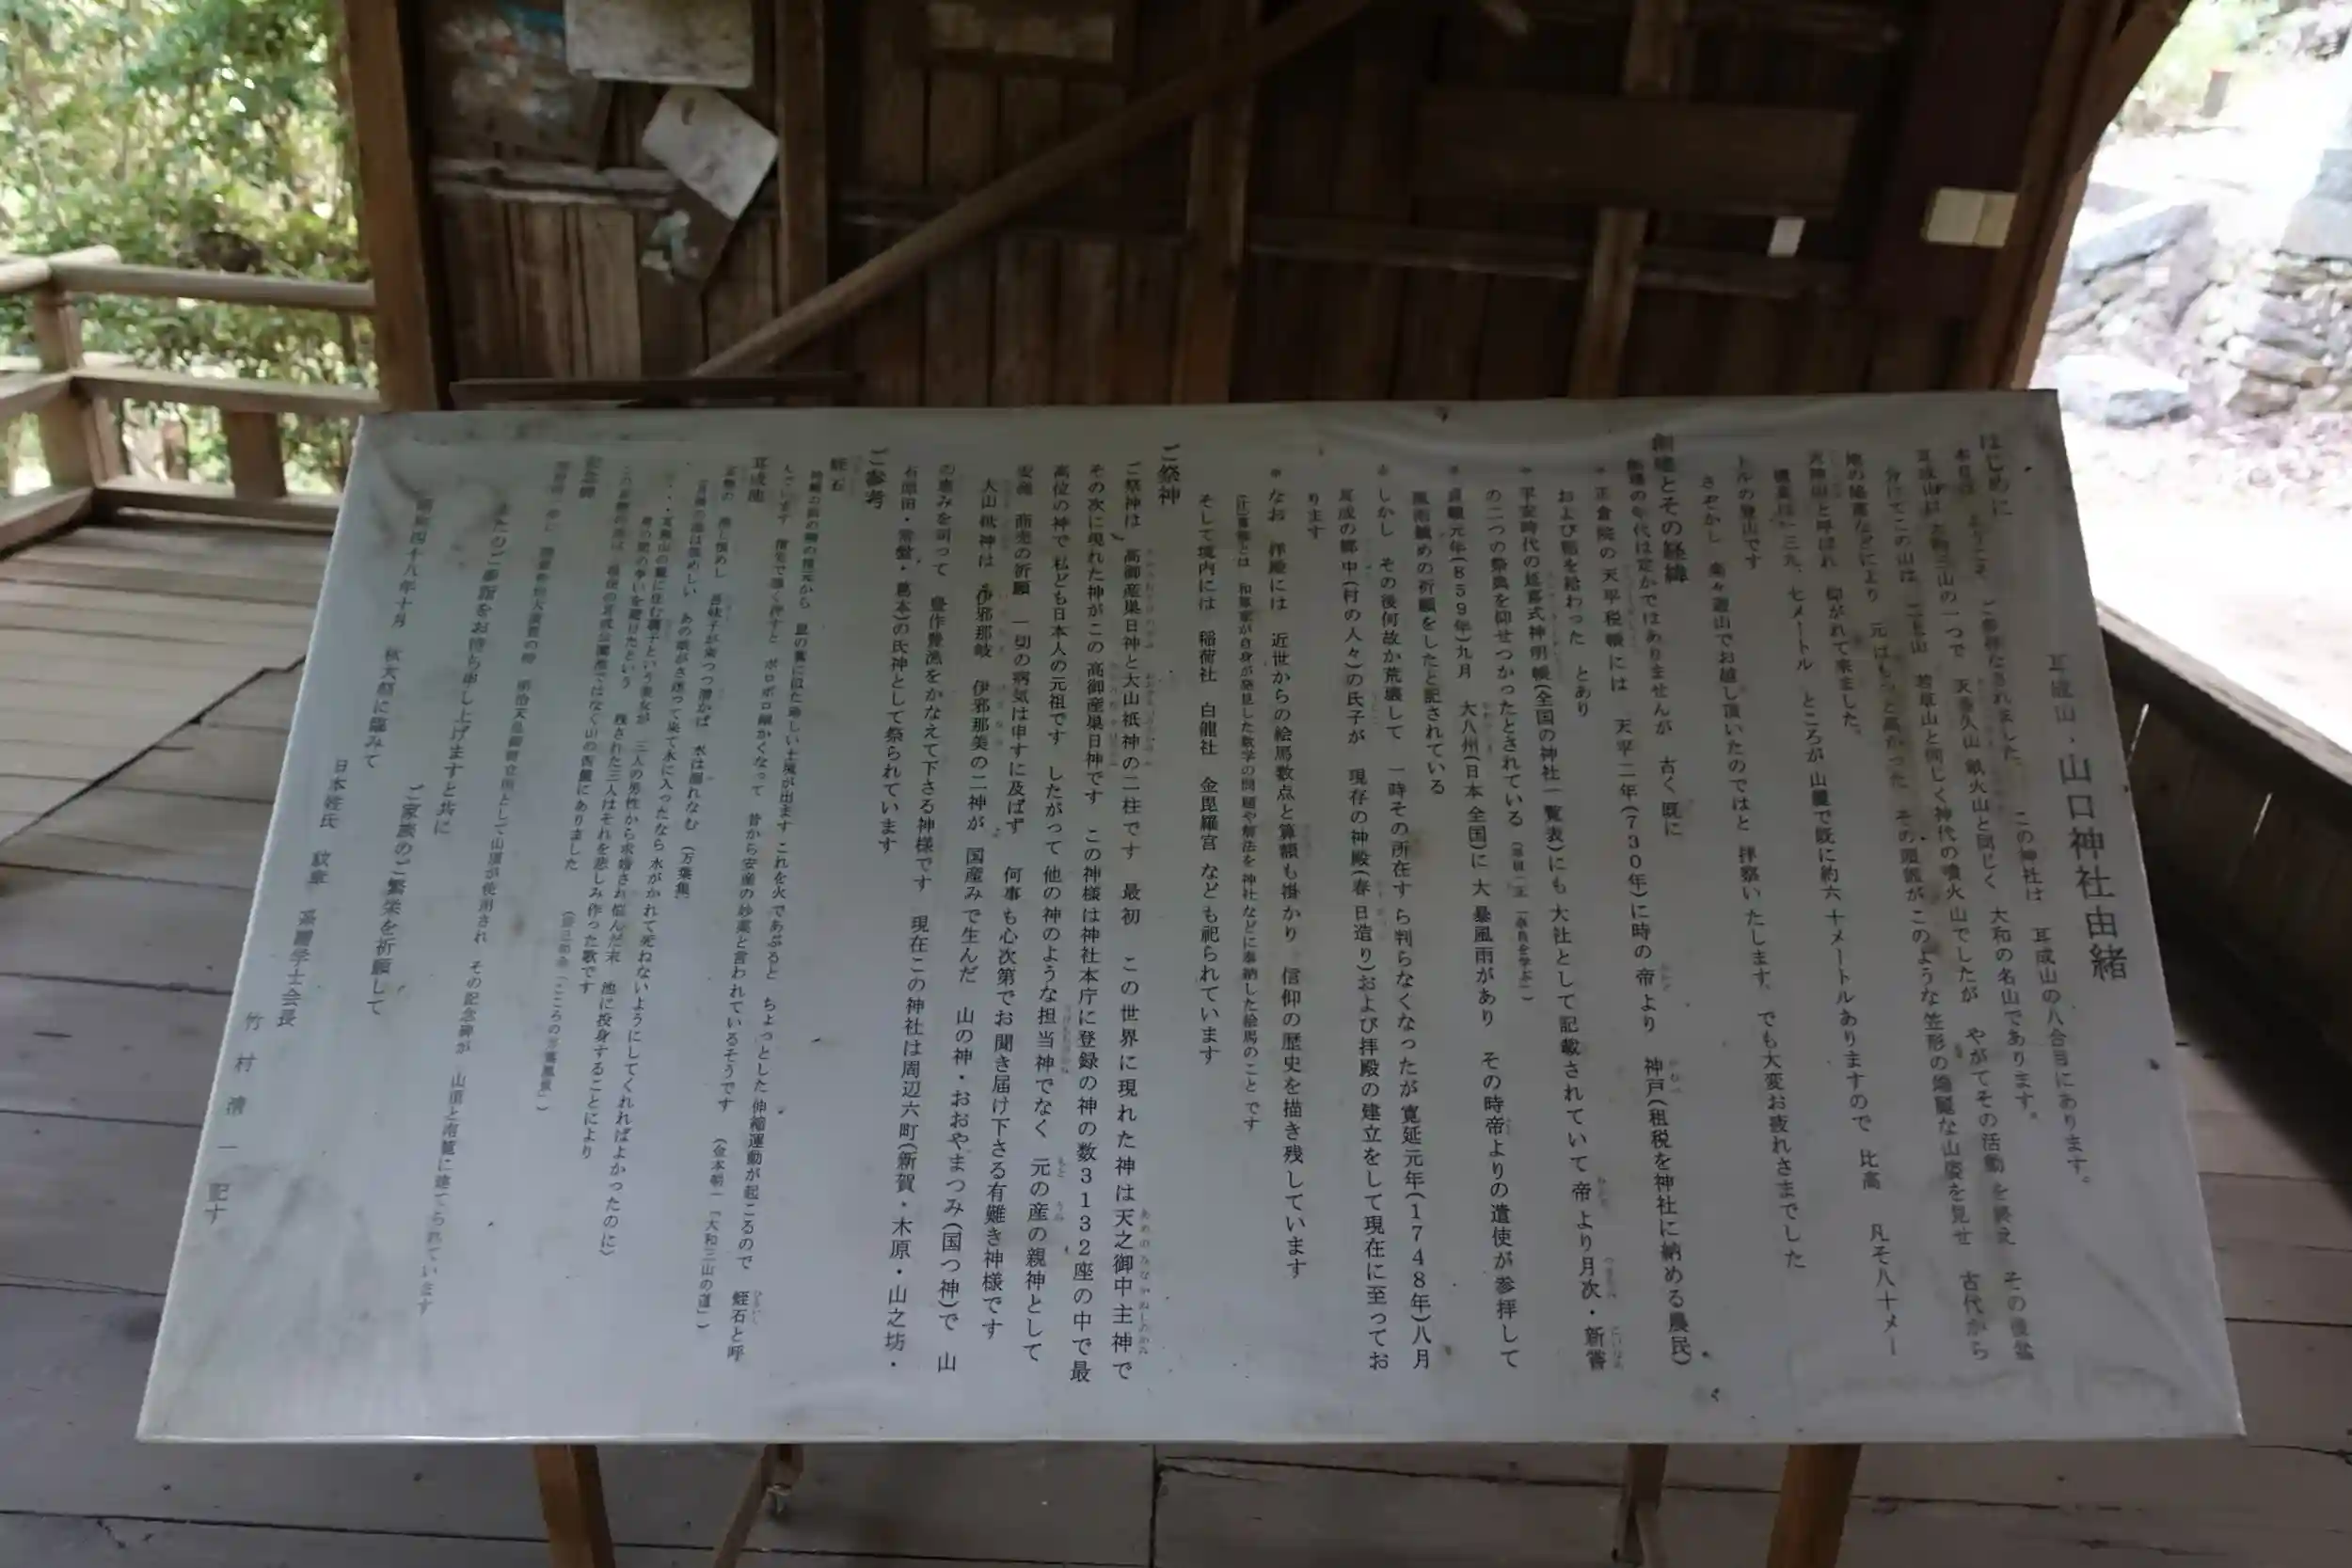 耳成山・山口神社由緒
はじめに
ご参拝なされました。 この神社は 耳成山の八合目にあります。
耳成山は 大和三山の一つで 天香久山 畝火山と同じく 大和の名山であります。
この山は 二上山 若草山と同じく神代の噴火山でしたが やがてその活動を終え その後盆
地の陥落などにより 元はもっと高かった その頂部がこのような笠形の端麗な山姿を見せ 古代から
と呼ばれ 仰がれて来ました。
標高は一三九、七メートル ところが 山麓で既に約六十メートルありますので 比高 凡そ八十メー
トルの登山です
さぞかし 楽々遊山でお越し頂いたのではと 拝察いたします。でも大変お疲れさまでした
創建とその経緯
創建の年代は定かではありませんが 古く既に
正倉院の天平税帳には 天平二年(730年)に時の帝より 神戸(租税を神社に納める農民)
および稲を給わった とあり
平安時代の延喜式神明帳(全国の神社一覧表)にも大社として記載されていて 帝より月次・新嘗
の二つの祭典を仰せつかったとされている
貞観元年(859年)九月 大八州(日本全国)に大暴風雨があり その時帝よりの遣使が参拝して
風雨鎮めの祈願をしたと記されている
しかし その後何故か荒壊して 一時その所在すら判らなくなったが寛延元年(1748年)八月
耳成の郷中(村の人々)の氏子が 現存の神殿(春日造り)および拝殿の建立をして現在に至ってお
ります
なお 拝殿には 近世からの絵馬数点と算額も掛かり 信仰の歴史を描き残しています
(注)算額とは 和算家が自身が発見した数学の問題や解法を神社などに奉納した絵馬のことです
そして境内には 稲荷社 白龍社 金毘羅宮 なども祀られています
ご祭神
ご祭神は 高御産巣日神と大山祇神の二柱です 最初 この世界に現れた神は天之御中主神で
その次に現れた神がこの 高御産巣日神です この神様は神社本庁に登録の神の数3132座の中で最
高位の神で 私ども日本人の元祖です したがって 他の神のような担当神でなく 元の産の親神として
安産 商売の祈願 一切の病気は申すに及ばず 何事も心次第でお聞き届け下さる有難き神様です
大山祇神は 伊邪那岐 伊邪那美の二神が 国産みで生んだ 山の神・おおやまつみ(国つ神)で 山
の恵みを司って 豊作豊漁をかなえて下さる神様です 現在この神社は周辺六町(新賀・木原・山之坊・
石原田・常盤・葛本)の氏神として祭られています
ご参考
蛭石
これを火であぶると ちょっとした伸縮運動が起こるので 蛭石と呼
んでいます 指先で導く押すと ボロボロ細かくなって 昔から安産の妙薬と言われているそうです (金本朝一「大和三山の道」)
耳成池
耳無の 池し恨めし 吾妹子が来つつ潜かば 水は涸れなむ (万葉集)
耳無の池は恨めしい あの娘がさ迷って来て水に入ったなら 水がかれて死ねないようにしてくれればよかったのに)
耳無山の麓に住む縵子という美女が 三人の男性から求婚され 悩んだ末 池に投身することにより
男の間の争いを避けたという 残された三人はそれを悲しみ作った歌です
現在の耳成公園池ではなく山の西麓にありました
記念碑
陸軍特別大演習の時 明治天皇御野立所として山頂が使用され その記念碑が 山頂と南麓に建てられています
またのご参詣をお待ち申し上げますと共に
ご家族のご繁栄を祈願して
四十八年十月 秋大祭に臨みて
日本姓氏 紋章 系譜学士会長
竹村清一 記す